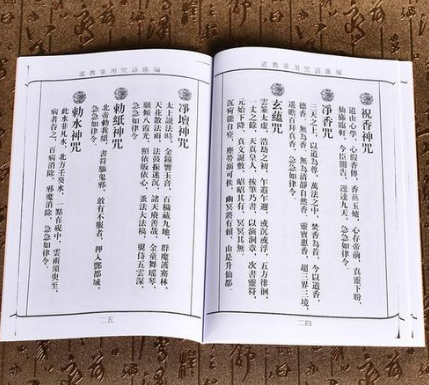 道教常用咒語匯編
祝香神咒
道由心學，心假香傳，香爇玉爐，心存帝前，真靈下盼，
仙旆臨軒，今臣關告，逕達九天，急急如律令。
淨香咒
三天之上，以道為尊，萬法之中，焚香為首，今以道香，
德香，無為香，無為清靜自然香，靈寶惠香，超三界三境，
遙瞻百拜真香，急急如律令。
玄蘊咒
雲篆太虛，浩劫之初，乍遐乍邇，或沉或浮，五方徘徊，
一丈之餘，天真皇人，按筆乃書，以演洞章，次書靈符，
元始下降，真文誕敷，昭昭其有，冥冥其無，
沉疴能自痊，塵勞溺可扶，幽冥將有賴，由是升仙都。
二四
道教常用咒語匯編
淨壇神咒
太上說法時，金鐘響玉音，百穢藏九地，群魔護騫林，
天花散法雨，法鼓振迷沉，諸天賡善哉，金童舞瑤琴，
願傾八霞光，照依皈依心，蚤法大法稿，翼侍五雲深，
急急如律令
勅紙神咒
北帝勅我紙，書符驅鬼邪，敢有不服者，押入酆都城，
急急如律令
勅水神咒
此水非凡水，北方壬癸水，一點在硯中，雲雨須臾至，
病者吞之，百病消除，邪魔消除，急急如律令。
二五